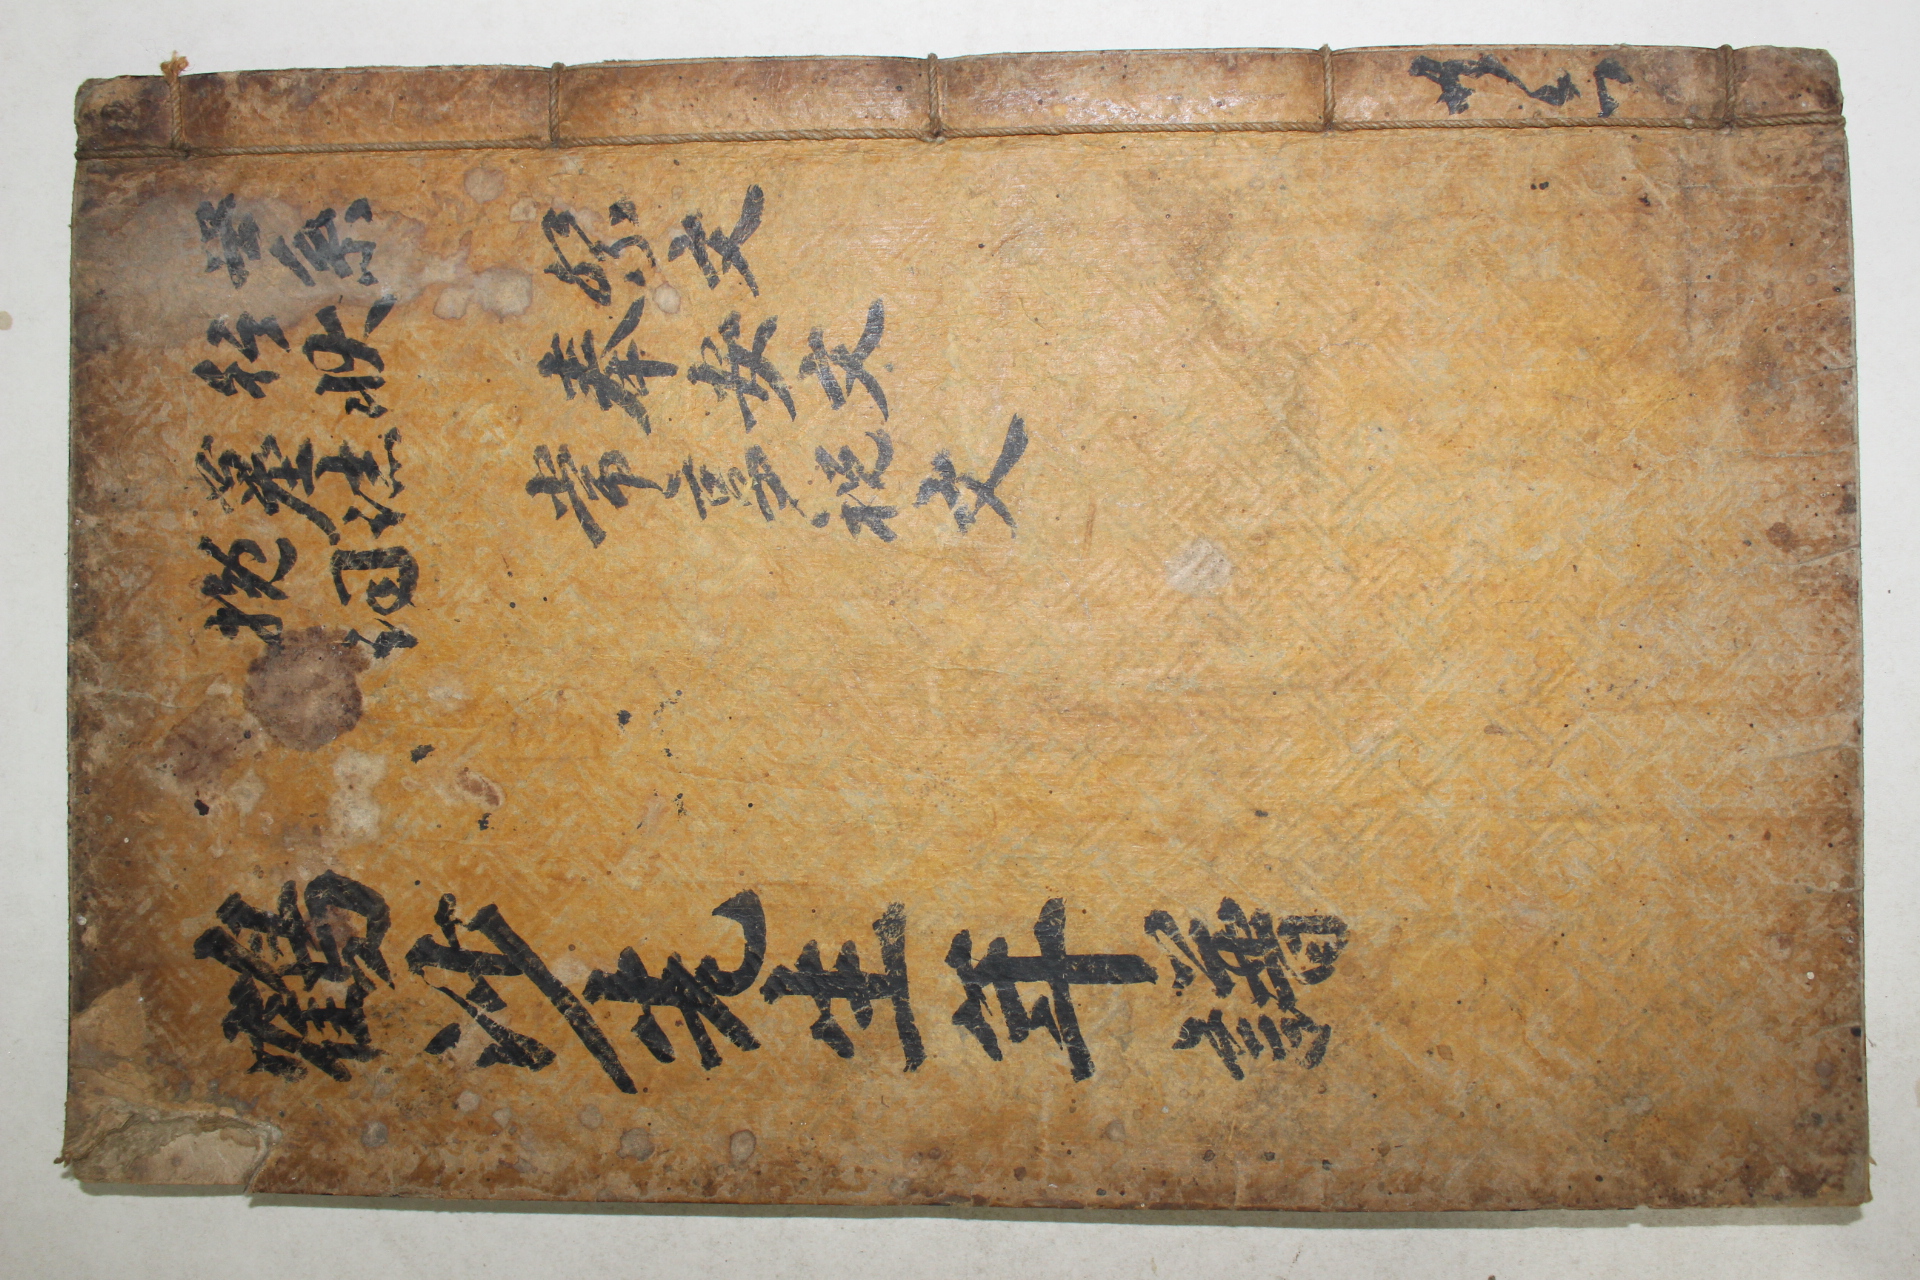 世系
行狀
墓誌
挽詞
祭文
奉安文
常享祝文
鶴沙先生年譜
共二